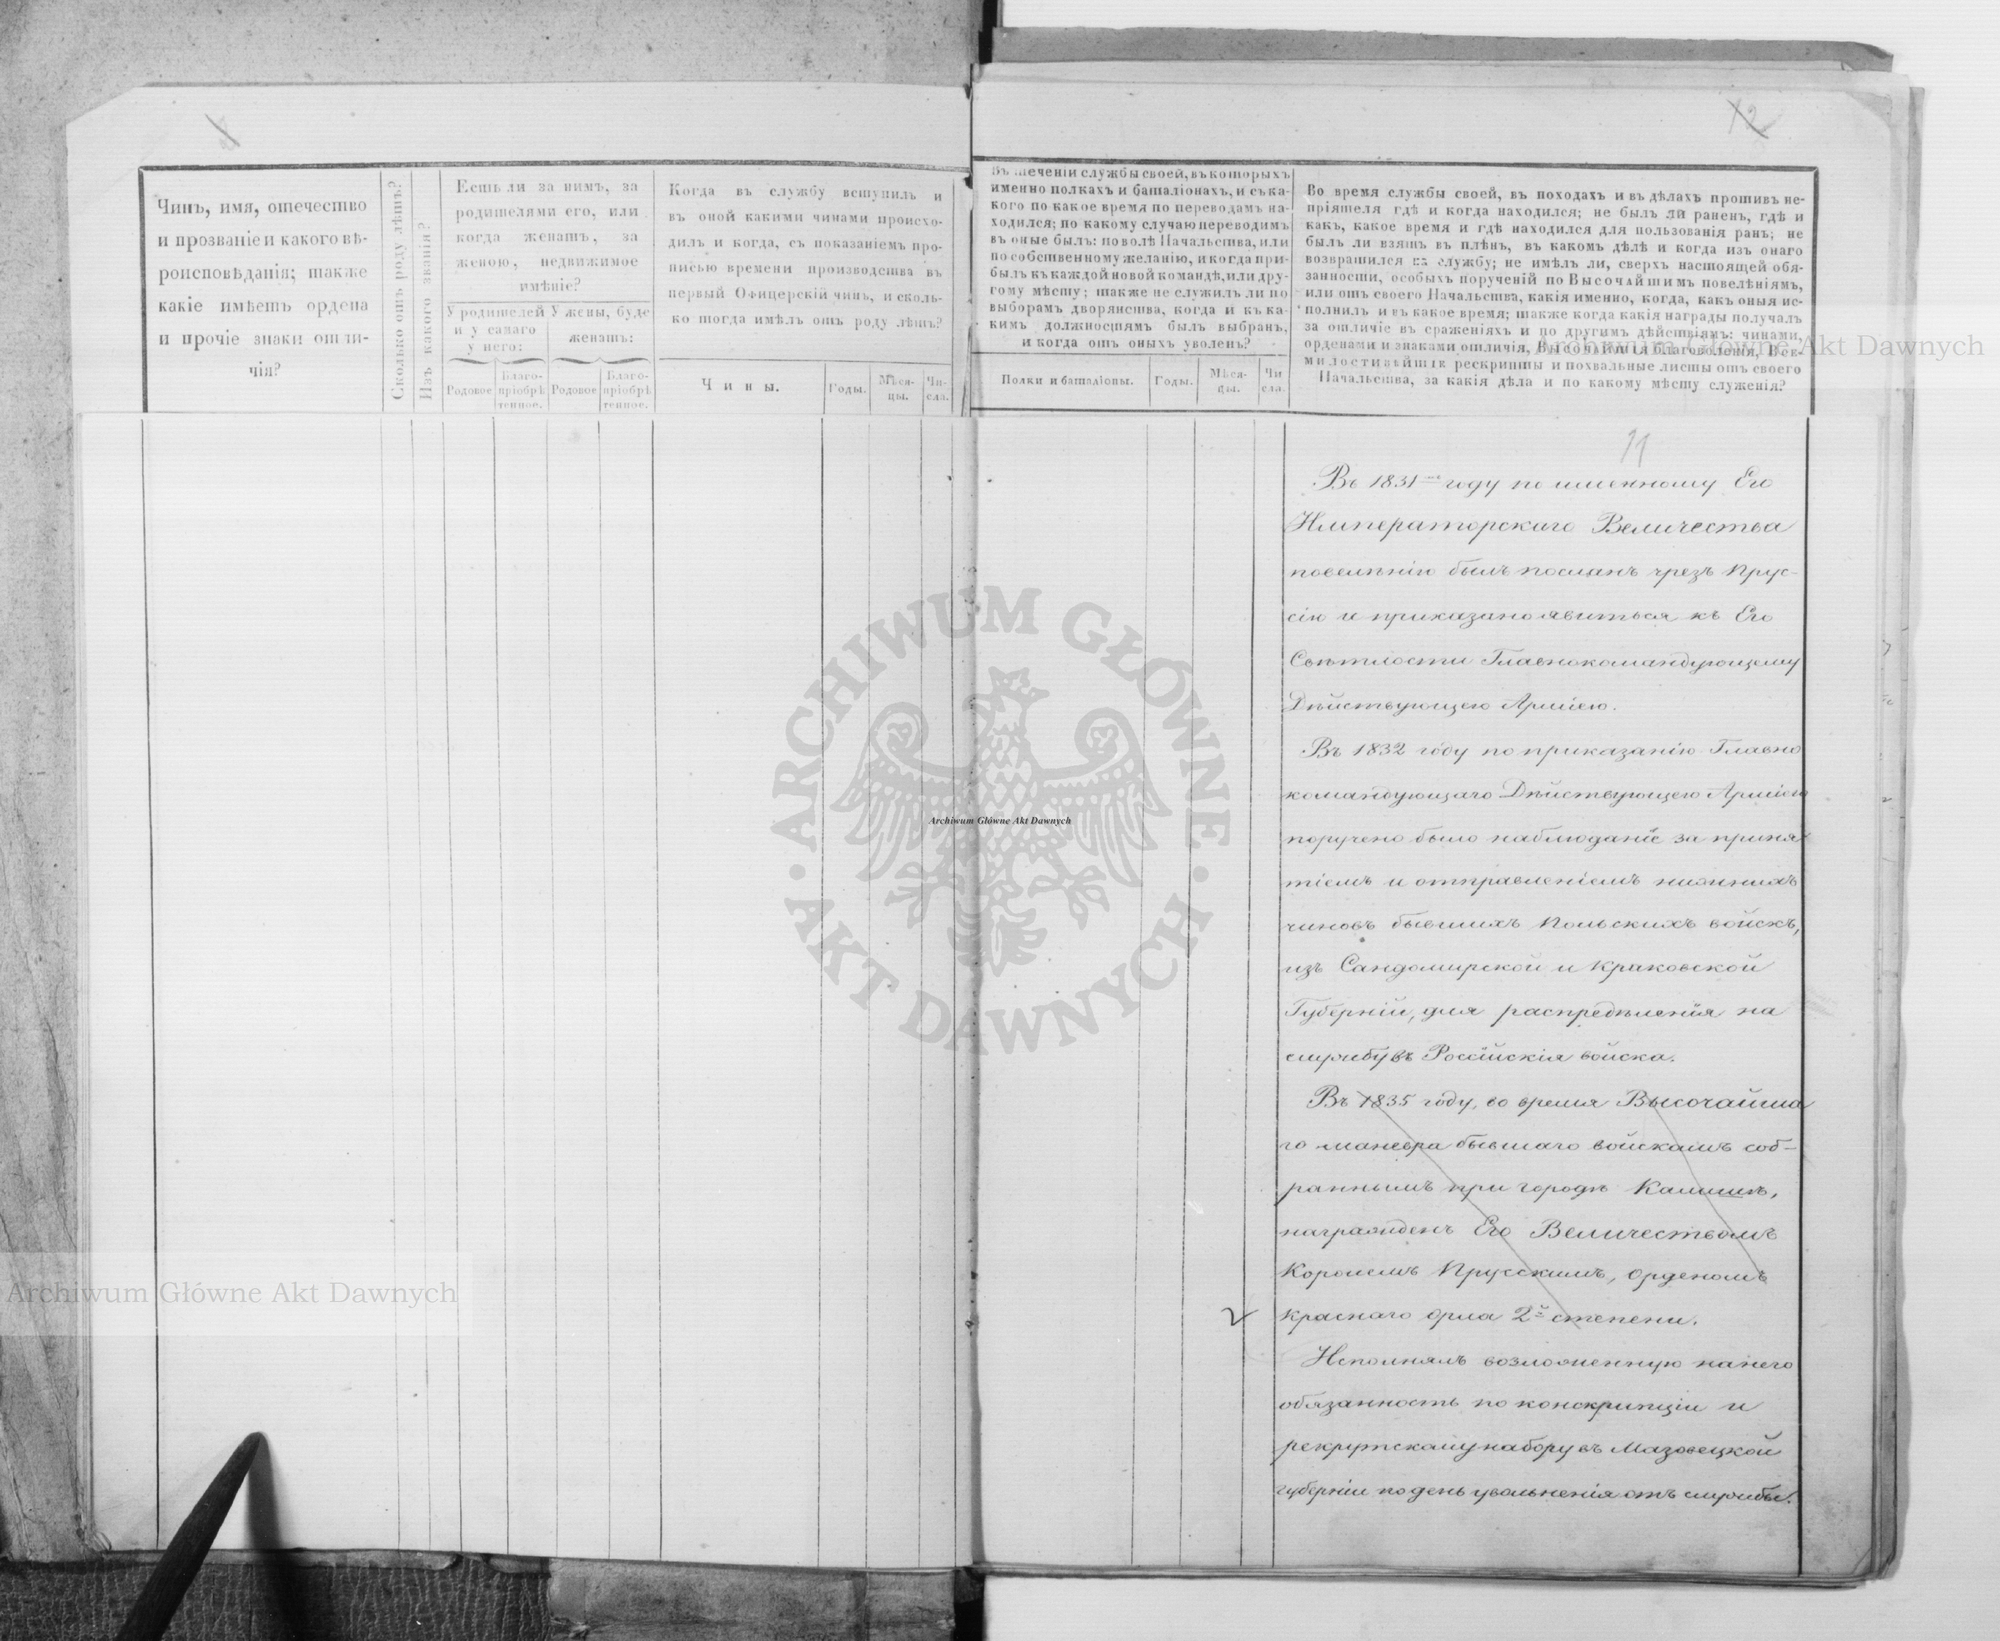 Чинъ, имя, отечество
и прозваніе и какого вѣ-
роисповѣданія; также
какіе имѣетъ ордена
и прочіе знаки отли-
чія?
Сколько отъ роду лѣтъ?
Изъ какого званія?
Есть ли за нимъ, за
родителями его, или
когда женатъ, за
женою, недвижимое
имѣніе?
У родителей
и у самаго
у него:
У жены, буде
женатъ:
Родовое
Благо-
пріобрѣ
тенное.
Родовое
Благо-
пріобрѣ
тенное.
Когда въ службу вступилъ и
въ оной какими чинами происхо-
дилъ и когда, съ показаніемъ про-
писью времени производства въ
первый Офицерскій чинъ, и сколь-
ко тогда имѣлъ отъ роду лѣтъ?
Чины.
Годы.
Мѣся-
цы.
Чи-
сла.
Въ теченіи службы своей, въ которыхъ
именно полкахъ и баталіонахъ, и съ ка-
кого по какое время по переводамъ на-
ходился; по какому случаю переводимъ
въ оные былъ: по волѣ Начальства, или
по собственному желанію, и когда при-
былъ къ каждой новой командѣ, или дру-
гому мѣсту; также не служилъ ли по
выборамъ дворянства, когда и къ ка-
кимъ должностямъ былъ выбранъ,
и когда отъ оныхъ уволенъ?
Полки и баталіоны.
Годы.
Мѣся-
цы.
Чи
сла.
Во время службы своей, въ походахъ и въ дѣлахъ противъ не-
пріятеля гдѣ и когда находился; не былъ ли раненъ, гдѣ и
какъ, какое время и гдѣ находился для пользованія ранъ; не
былъ ли взятъ въ плѣнъ, въ какомъ дѣлѣ и когда изъ онаго
возвратился на службу; не имѣлъ ли, сверхъ настоящей обя-
занности, особыхъ порученій по Высочайшимъ повелѣніямъ,
или отъ своего Начальства, какія именно, когда, какъ оныя ис-
полнилъ и въ какое время; также когда какія награды получалъ
за отличіе въ сраженіяхъ и по другимъ дѣйствіямъ: чинами,
орденами и знаками отличія, Высочайшія благоволенія, Все-
милостивѣйшіе рескрипты и похвальные листы отъ своего
Начальства, за какія дѣла и по какому мѣсту служенія?
12
11
Въ 1831 году по именному Его
Императорскаго Величества
повелѣнію былъ посланъ чрезъ Прус-
сію и приказано явиться къ Его
Свѣтлости Главнокомандующему
Дѣйствующею Арміею.
Въ 1832 году по приказанію Главно
командующаго Дѣйствующею Арміею
поручено было наблюданіе за приня-
тіемъ и отправленіемъ нижнихъ
чиновъ бывшихъ Польскихъ войскъ,
изъ Сандомирской и Краковской
Губерній, для распредѣленія на
службу въ Россійскія войска.
Въ 1835 году, во время Высочайша
го маневра бывшаго войскамъ соб-
раннымъ при городѣ Калишѣ,
награжденъ Его Величествомъ
Королемъ Прусскимъ, орденомъ
краснаго орла 2й степени.
Исполнялъ возложенную на него
обязанность по конскрипціи и
рекрутскому набору въ Мазовецкой
губерніи по день увольненія отъ службы.
ARCHIWUM GŁÓWNE AKT DAWNYCH
Archiwum Główne Akt Dawnych
Archiwum Główne Akt Dawnych
Archiwum Główne Akt Dawnych